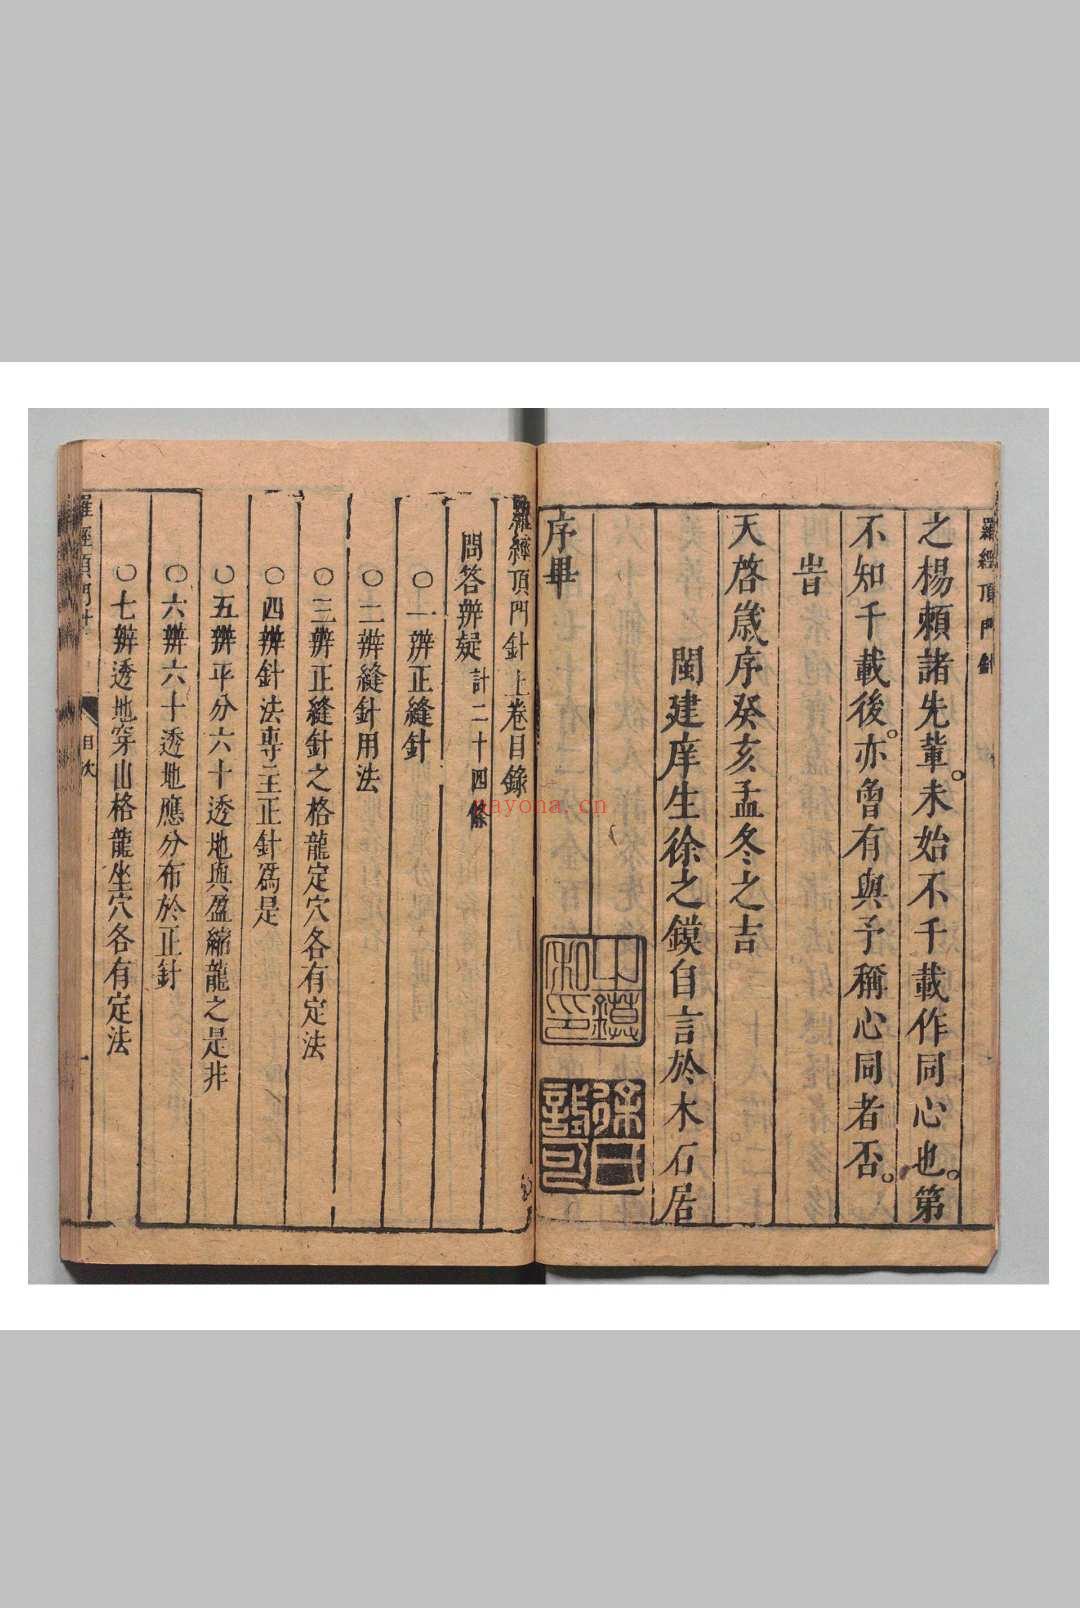 羅經頂門針
之楊賴諸先輩。未始不千載作同心也。第
不知千載後。亦曾有與予稱心同者否。
旹
天啓歲序癸亥孟冬之吉
閩建庠生徐之鏌自言於木石居
序畢
羅經頂門針上卷目錄
問答辨疑 計二十四條
○一辨正縫針
○二辨縫針用法
○三辨正縫針之格龍定穴各有定法
○四辨針法專主正針爲是
○五辨平分六十透地與盈縮龍之是非
○六辨六十透地應分布於正針
○七辨透地穿山格龍坐穴各有定法
羅經頂門針
目次
一
nayona.cn